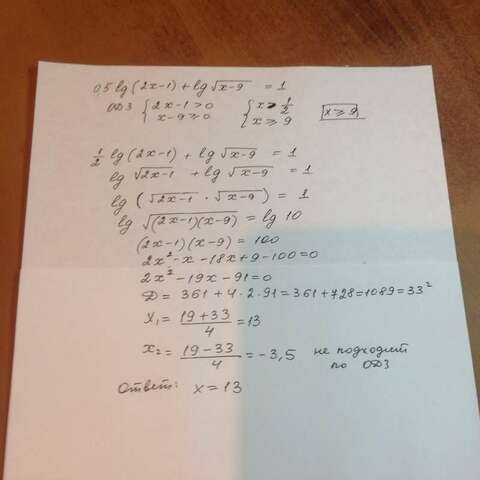 0,5 lg (2x-1) + lg √(x-9) = 1
ОДЗ { 2x-1 > 0 { x > 1/2
x-9 ≥ 0 x ≥ 9 x ≥ 9
1/2 lg (2x-1) + lg √(x-9) = 1
lg √(2x-1) + lg √(x-9) = 1
lg (√(2x-1) · √(x-9)) = 1
lg √((2x-1)(x-9)) = lg 10
(2x-1)(x-9) = 100
2x² - x - 18x + 9 - 100 = 0
2x² - 19x - 91 = 0
D = 361 + 4·2·91 = 361 + 728 = 1089 = 33²
x₁ = (19+33)/4 = 13
x₂ = (19-33)/4 = -3,5 не подходит
по ОДЗ
Ответ: x = 13